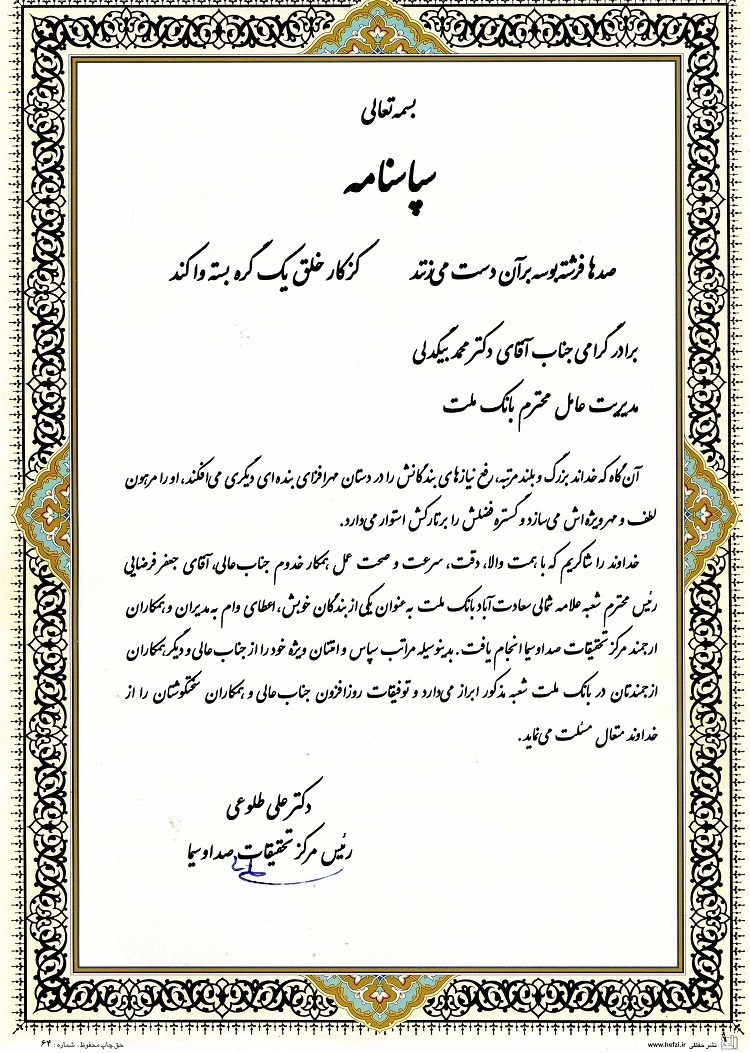 بسمه تعالی
سپاسنامه
صدها فرشته بوسه بر آن دست می‌زنند کز کار خلق یک گره بسته وا کند
برادر گرامی جناب آقای دکتر محمد بیگدلی
مدیریت عامل محترم بانک ملت
آن گاه که خداند بزرگ و بلند مرتبه، رفع نیازهای بندگانش را در دستان مهرافزای بنده‌ای دیگری می‌افکند، او را مرهون
لطف و مهر ویژه‌اش می‌سازد و گستره فضلش را بر تارکش استوار می‌دارد.
خداوند را شاکریم که با همت والا، دقت، سرعت و صحت عمل همکار خدوم جناب‌عالی، آقای جعفر فرضایی
رئیس محترم شعبه علامه شمالی سعادت آباد بانک ملت به عنوان یکی از بندگان خوبش، اعطای وام به مدیران و همکاران
ارجمند مرکز تحقیقات صداوسیما انجام یافت. بدینوسیله مراتب سپاس و امتنان ویژه خود را از جناب‌عالی و دیگر همکاران
ازجمندتان در بانک ملت شعبه مذکور ابراز می‌دارد و توفیقات روزافزون جناب‌عالی و همکاران سختکوشتان را از
خداوند متعال مسئلت می‌نماید.
دکتر علی طلوعی
رئیس مرکز تحقیقات صداوسیما
نشر حفظی www.hefzi.ir
حق چاپ محفوظ. شماره: ۶۴